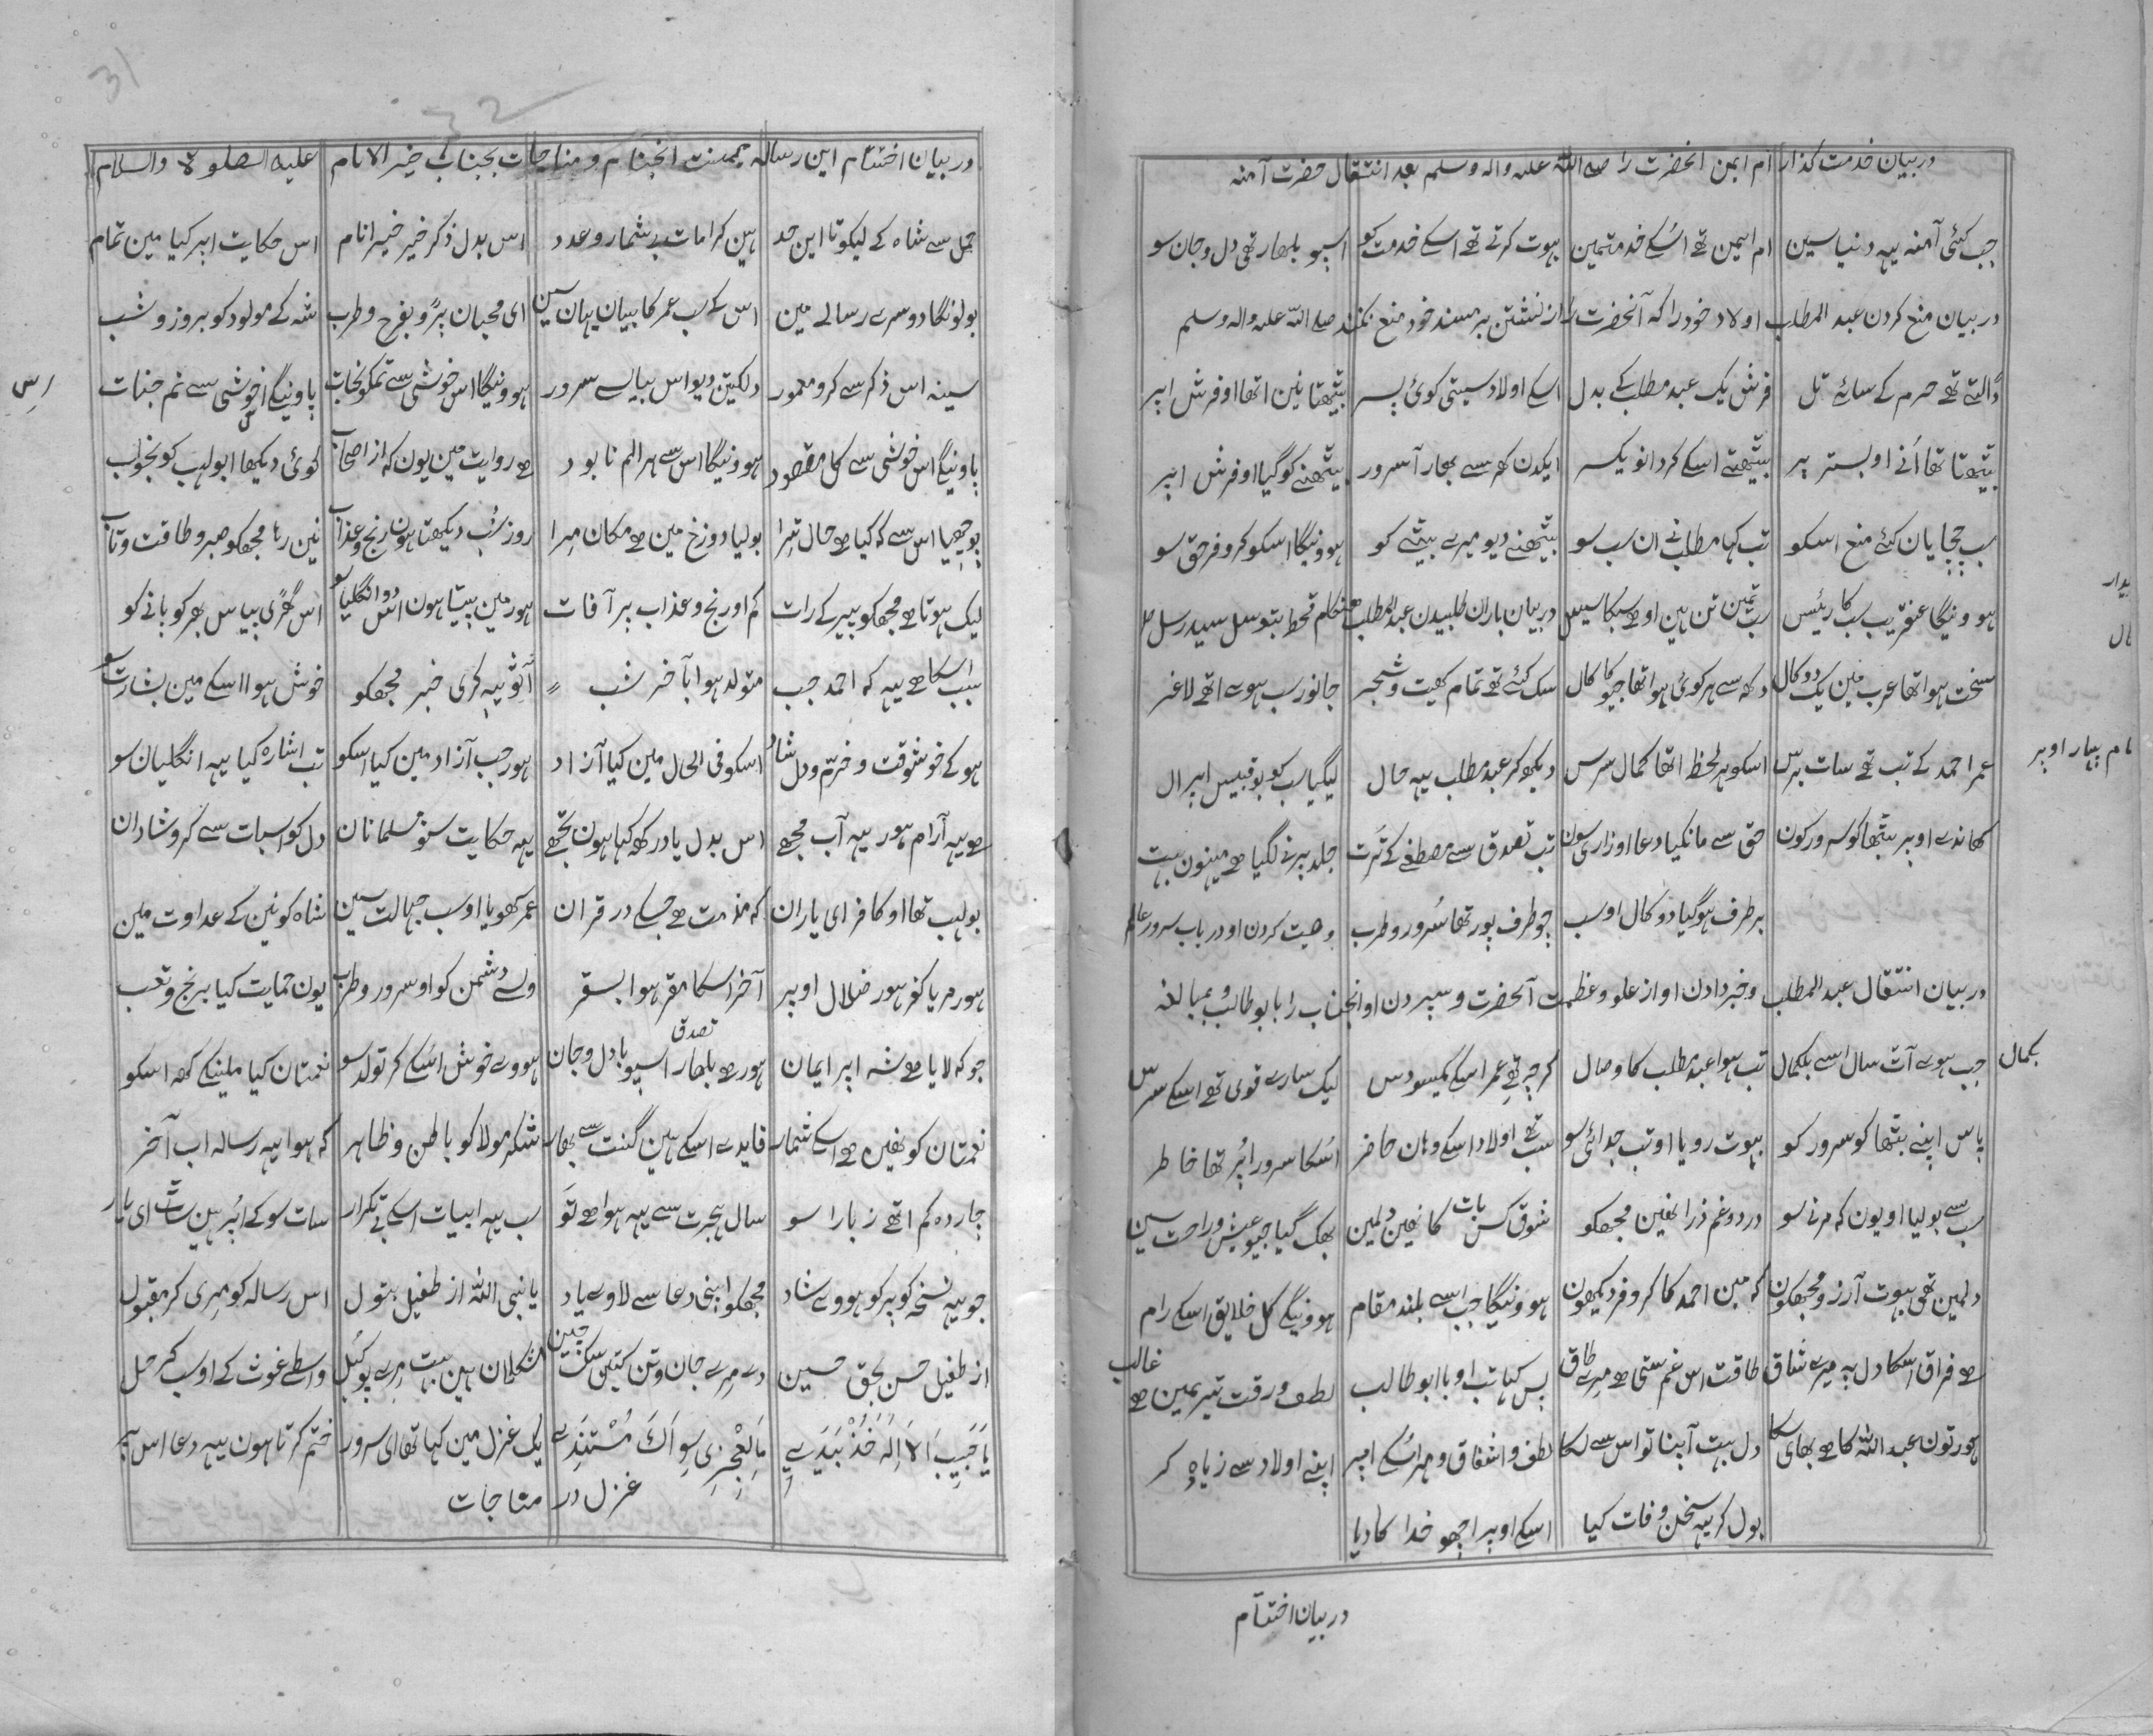 در بیان خدمت گذار ام ایمن انحضرت را صلے اللہ علیہ والہ وسلم بعد انتقال حضرت آمنہ
جب کئی آمنہ یہہ دنیا سین ام ایمن تھے اُسکے خدمتمین بہوت کرتے تھے اسکے خدمت کو اسپو بلہار تھی دل و جان سو
در بیان منع کردن عبد المطلب اولاد خود را کہ آنحضرت را از نشستن بر مسند خود منع نکنند صلے اللہ علیہ والہ وسلم
ڈالتے تھے حرم کے سائے تل فرش یک عبد مطلب کے بدل اسکے اولاد سیتی کوئ پسر بیٹھتا نین اتھا او فرش اپر
بیٹھتا تھا اُنے او بستر پر بیٹھتے اسکے کردا نو یکسر ایکدن کھر سے بھار آ سرور بیٹھنے کو گیا او فرش اپر
سب چچایان کئے منع اسکو تب کہا مطلب نے ان سب سو بیٹھنے دیو میرے بیٹے کو ہوونیگا اسکو کر و فر حق سو
ہوونیگا عنقریب سب کا رئیس رب تمین تن ہین او ہے سبکا سیس در بیان باران طلبیدن عبد المطلب ہنکام قحط بتوسل سید رسل
سخت ہوا تھا عرب مین یک دو کال دکھ سے ہر کوئ ہوا تھا جیو کا کال سک کئے تھے تمام کھیت و شجر جانور سب ہوے اتھے لاغر
عمر احمد کے تب تھے سات برس اسکو ہر لحظ اتھا کمال سرس دیکھ کر عبد مطلب یہہ حال لیگیا سب کو بوقبیس اپرال
کھاندے اوپر بیٹھا کو سرور کون حق سے مانگیا دعا او زاری سون تب تصدق سے مصطفے کے تُرت جلد پرنے لگیا ہے مینون بہت
برطرف ہوگیا دو کال او سب چوطرف پور تھا سُرور و طرب وصیت کردن او در باب سرور عالم
در بیان انتقال عبد المطلب و خبر دادن او از علو و عظمت آنحضرت و سپردن او انجناب را بابو طالب و بمبالغہ
جب ہوے آٹ سال اسے بکمال تب ہوا عبد مطلب کا وصال کرچہ تھے عمر اسکے یکسو دس لیک سارے قوی تھے اسکے سرس
پاس اپنے بٹھا کو سرور کو بہوت رویا او تب جدائی سو سب تھے اولاد اسکے وہان حاضر اُسکا سرور اپُر تھا خاطر
سب سے بولیا او یون کہ مرنے سو درد و غم ذرا نھین مجھکو شوق کس بات کا نھین دلمین بھک گیا جیو عیش و راحت سین
دلمین تھی بہوت آرزو مجھکون کہ مین احمد کا کر و فر دیکھون ہوونیگا جب اسے بلند مقام ہوونیگے کل خلایق اسکے رام
ہے فراق اسکا دل پہ میرے شاق طاقت اس غم ستی ہے میرے طاق پس کہا تب او با ابو طالب لطف و رقت تیریمین ہے غالب
ہور تون عبد اللہ کا ہے بھای سکا دل بہت آپنا تو اس سے لکا لطف و اشفاق و مہر اُسکے اپر اپنے اولاد سے زیادہ کر
بول کر یہہ سخن وفات کیا اسکے اوپر اچھو خدا کا دیا
در بیان اختتام
بکمال
در بیان اختتام این رسالہ میمنت انجام و مناجات بجناب خیر الانام علیہ الصلوۃ والسلام
حمل سے شاہ کے لیکو تا این حد ہین کرامات بے شمار و عدد اس بدل ذکر خیر خیر انام اس حکایت اپر کیا مین تمام
بولونگا دوسرے رسالے مین اس کے سب عمر کا بیان یہان سین ای محبان پر و بفرح و طرب شہ کے مولود کو بروز و شب
سینہ اس ذکر سے کرو معمور دلکتین دیو اس بیاں سے سرور ہوونیگا اس خوشی سے تمکو نجات پاوینگے خوشی سے تم جنات
اس
پاوینگے اس خوشی سے کل مقصود ہوونیگا اس سے ہر الم نابود ہے روایت مین یون کہ از اصحاب کوئ دیکھا ابولہب کو بخواب
پوچھیا اس سے کہ کیا ہے حال تیرا بولیا دوزخ مین ہے مکان مرا روز شب دیکھتا ہون رنج و عذاب نین رہا مجھکو صبر و طاقت و تاب
لیک ہوتا ہے مجھکو پیر کے رات کم او رنج و عذاب پر آفات ہور مین پیتا ہون اس دو انگلیاں سو اس گھڑی پیاس بھر کو پانی کو
سبب اسکا ہے یہہ کہ احمد جب متولد ہوا بآخر شب آ ثویبہ کری خبر مجھکو خوش ہوا اسکے مین بشارت سو
ہو کے خوشوقت و خرم و دل شاد اسکو فی الحال مین کیا آزاد ہور جب آزاد مین کیا اسکو تب اشارہ کیا یہہ انگلیان سو
ہے یہہ آرام ہور یہہ آب مجھے اس بدل یاد رکھ کہا ہون تجھے یہہ حکایت سنو مسلمانان دل کو اسبات سے کرو شادان
بولہب تھا او کافر ای یاران کہ مذمت ہے جسکے در قران عمر کھویا او سب جہالت سین شاہ کونین کے عداوت مین
ہور مریا کفر ہور ضلال اوپر آخر اسکا مقر ہوا بسقر ولے دشمن کو او سرور و طرب یون حمایت کیا برنج و تعب
جو کہ لایا ہے شہ اپر ایمان ہور ہے بلہار تصدق اسپو با دل و جان ہووے خوش اُسکے کر تولد سو نعمتان کیا ملینگے کھہ اسکو
نعمتان کو نھین ہے اسکے شمار فایدے اسکے ہین گنت سے بھار شکر مولا کو باطن و ظاہر کہ ہوا یہہ رسالہ اب آخر
چاردہ کم اتھے ز بارا سو سال ہجرت سے یہہ ہوا ہے تو سب یہہ ابیات اسکے بے تکرار سات سو کے اُپر ہین ساٹ ای یار
جو یہہ نسخہ کو پر کو ہووے شاد مجھکو اپنی دعا سے لاوے یاد یا نبی اللہ از طفیل بتول اس رسالہ کو مری کر مقبول
از طفیل حسن بحق حسین دے مرے جان و تن کتین سک چین مشکلان ہین بہت مرے پو کبل واسطے غوث کے او سب کر حل
یَا حَبِیبَ الاِلٰہ خُذْ بِیَدَیے مَا لِعَجْزِی سِوَاکَ مُسْتَنَدے یک غزل مین کہا تھا ای سرور ختم کرتا ہون یہہ دعا اس پر
غزل در مناجات